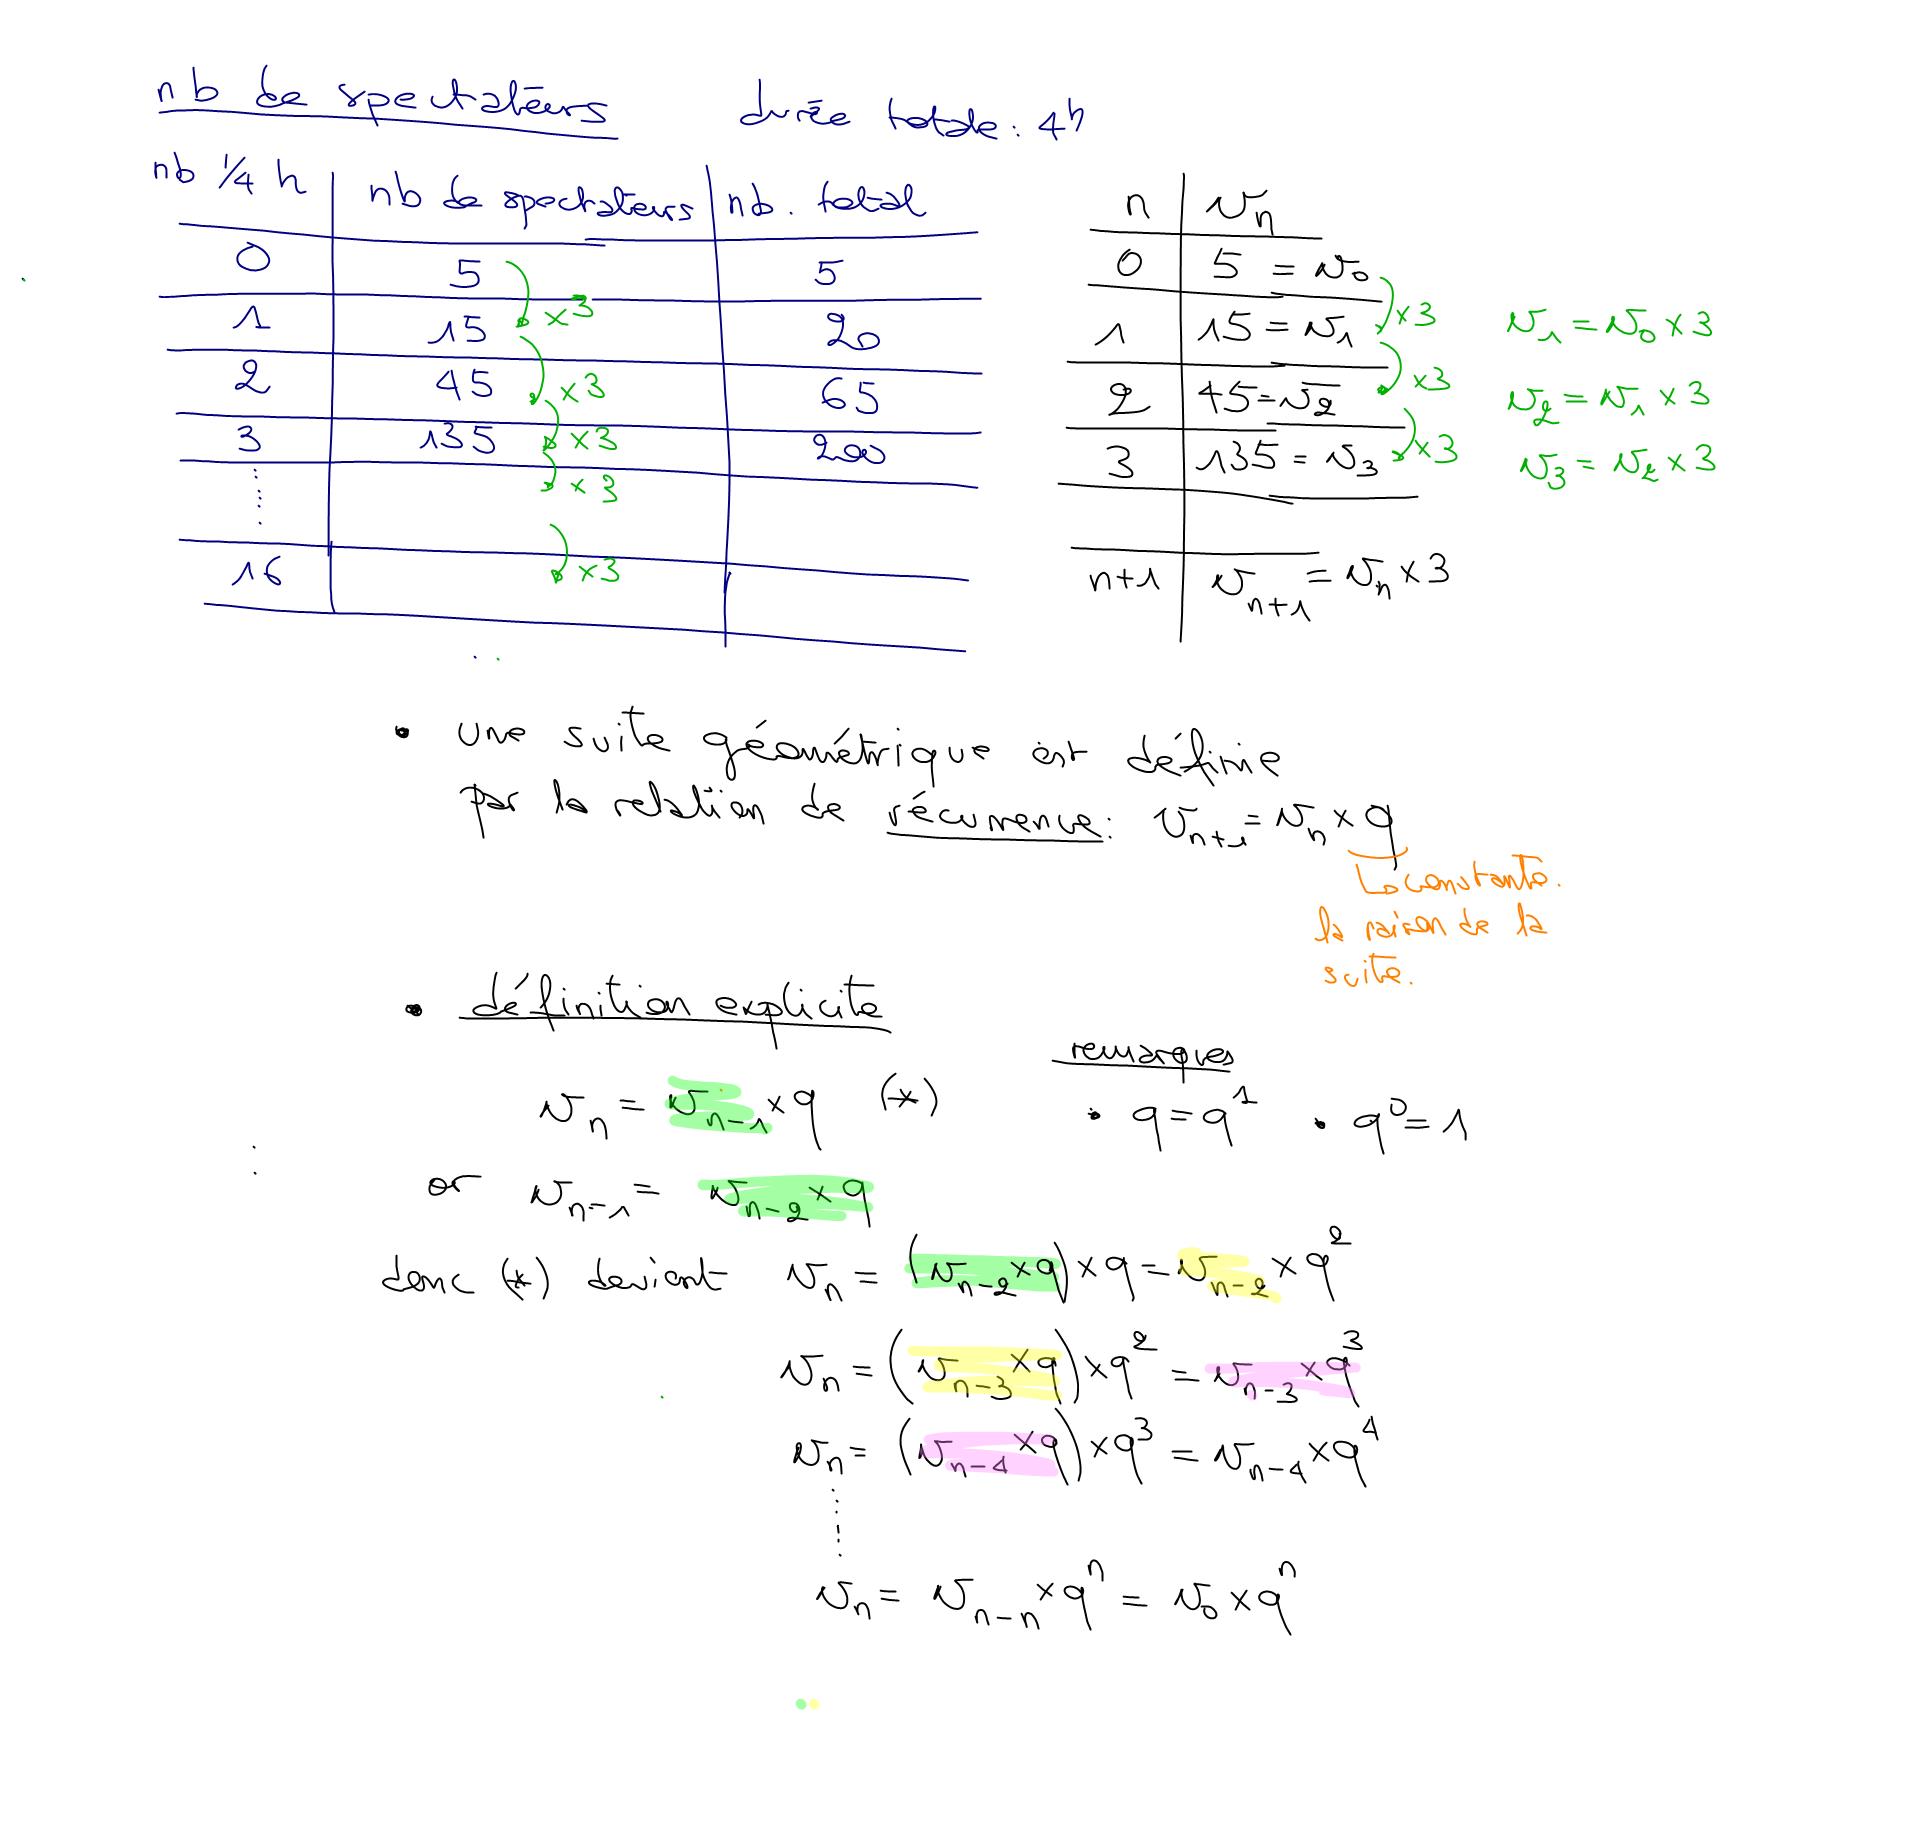 nb de spectateurs durée totale : 4h
nb 1/4 h nb de spectateurs nb. total
0 5 5
×3
1 15 20
×3
2 45 65
×3
3 135 200
×3
......
×3
16
n vn
0 5 = v0
×3
1 15 = v1
×3
2 45 = v2
×3
3 135 = v3
n+1 vn+1 = vn × 3
v1 = v0 × 3
v2 = v1 × 3
v3 = v2 × 3
• une suite géométrique est définie
par la relation de récurrence : vn+1 = vn × q
↳ constante.
la raison de la
suite.
• définition explicite
remarques
• q = q^1 • q^0 = 1
vn = vn-1 × q (*)
or vn-1 = vn-2 × q
donc (*) devient vn = (vn-2 × q) × q = vn-2 × q^2
vn = (vn-3 × q) × q^2 = vn-3 × q^3
vn = (vn-4 × q) × q^3 = vn-4 × q^4
......
vn = vn-n × q^n = v0 × q^n